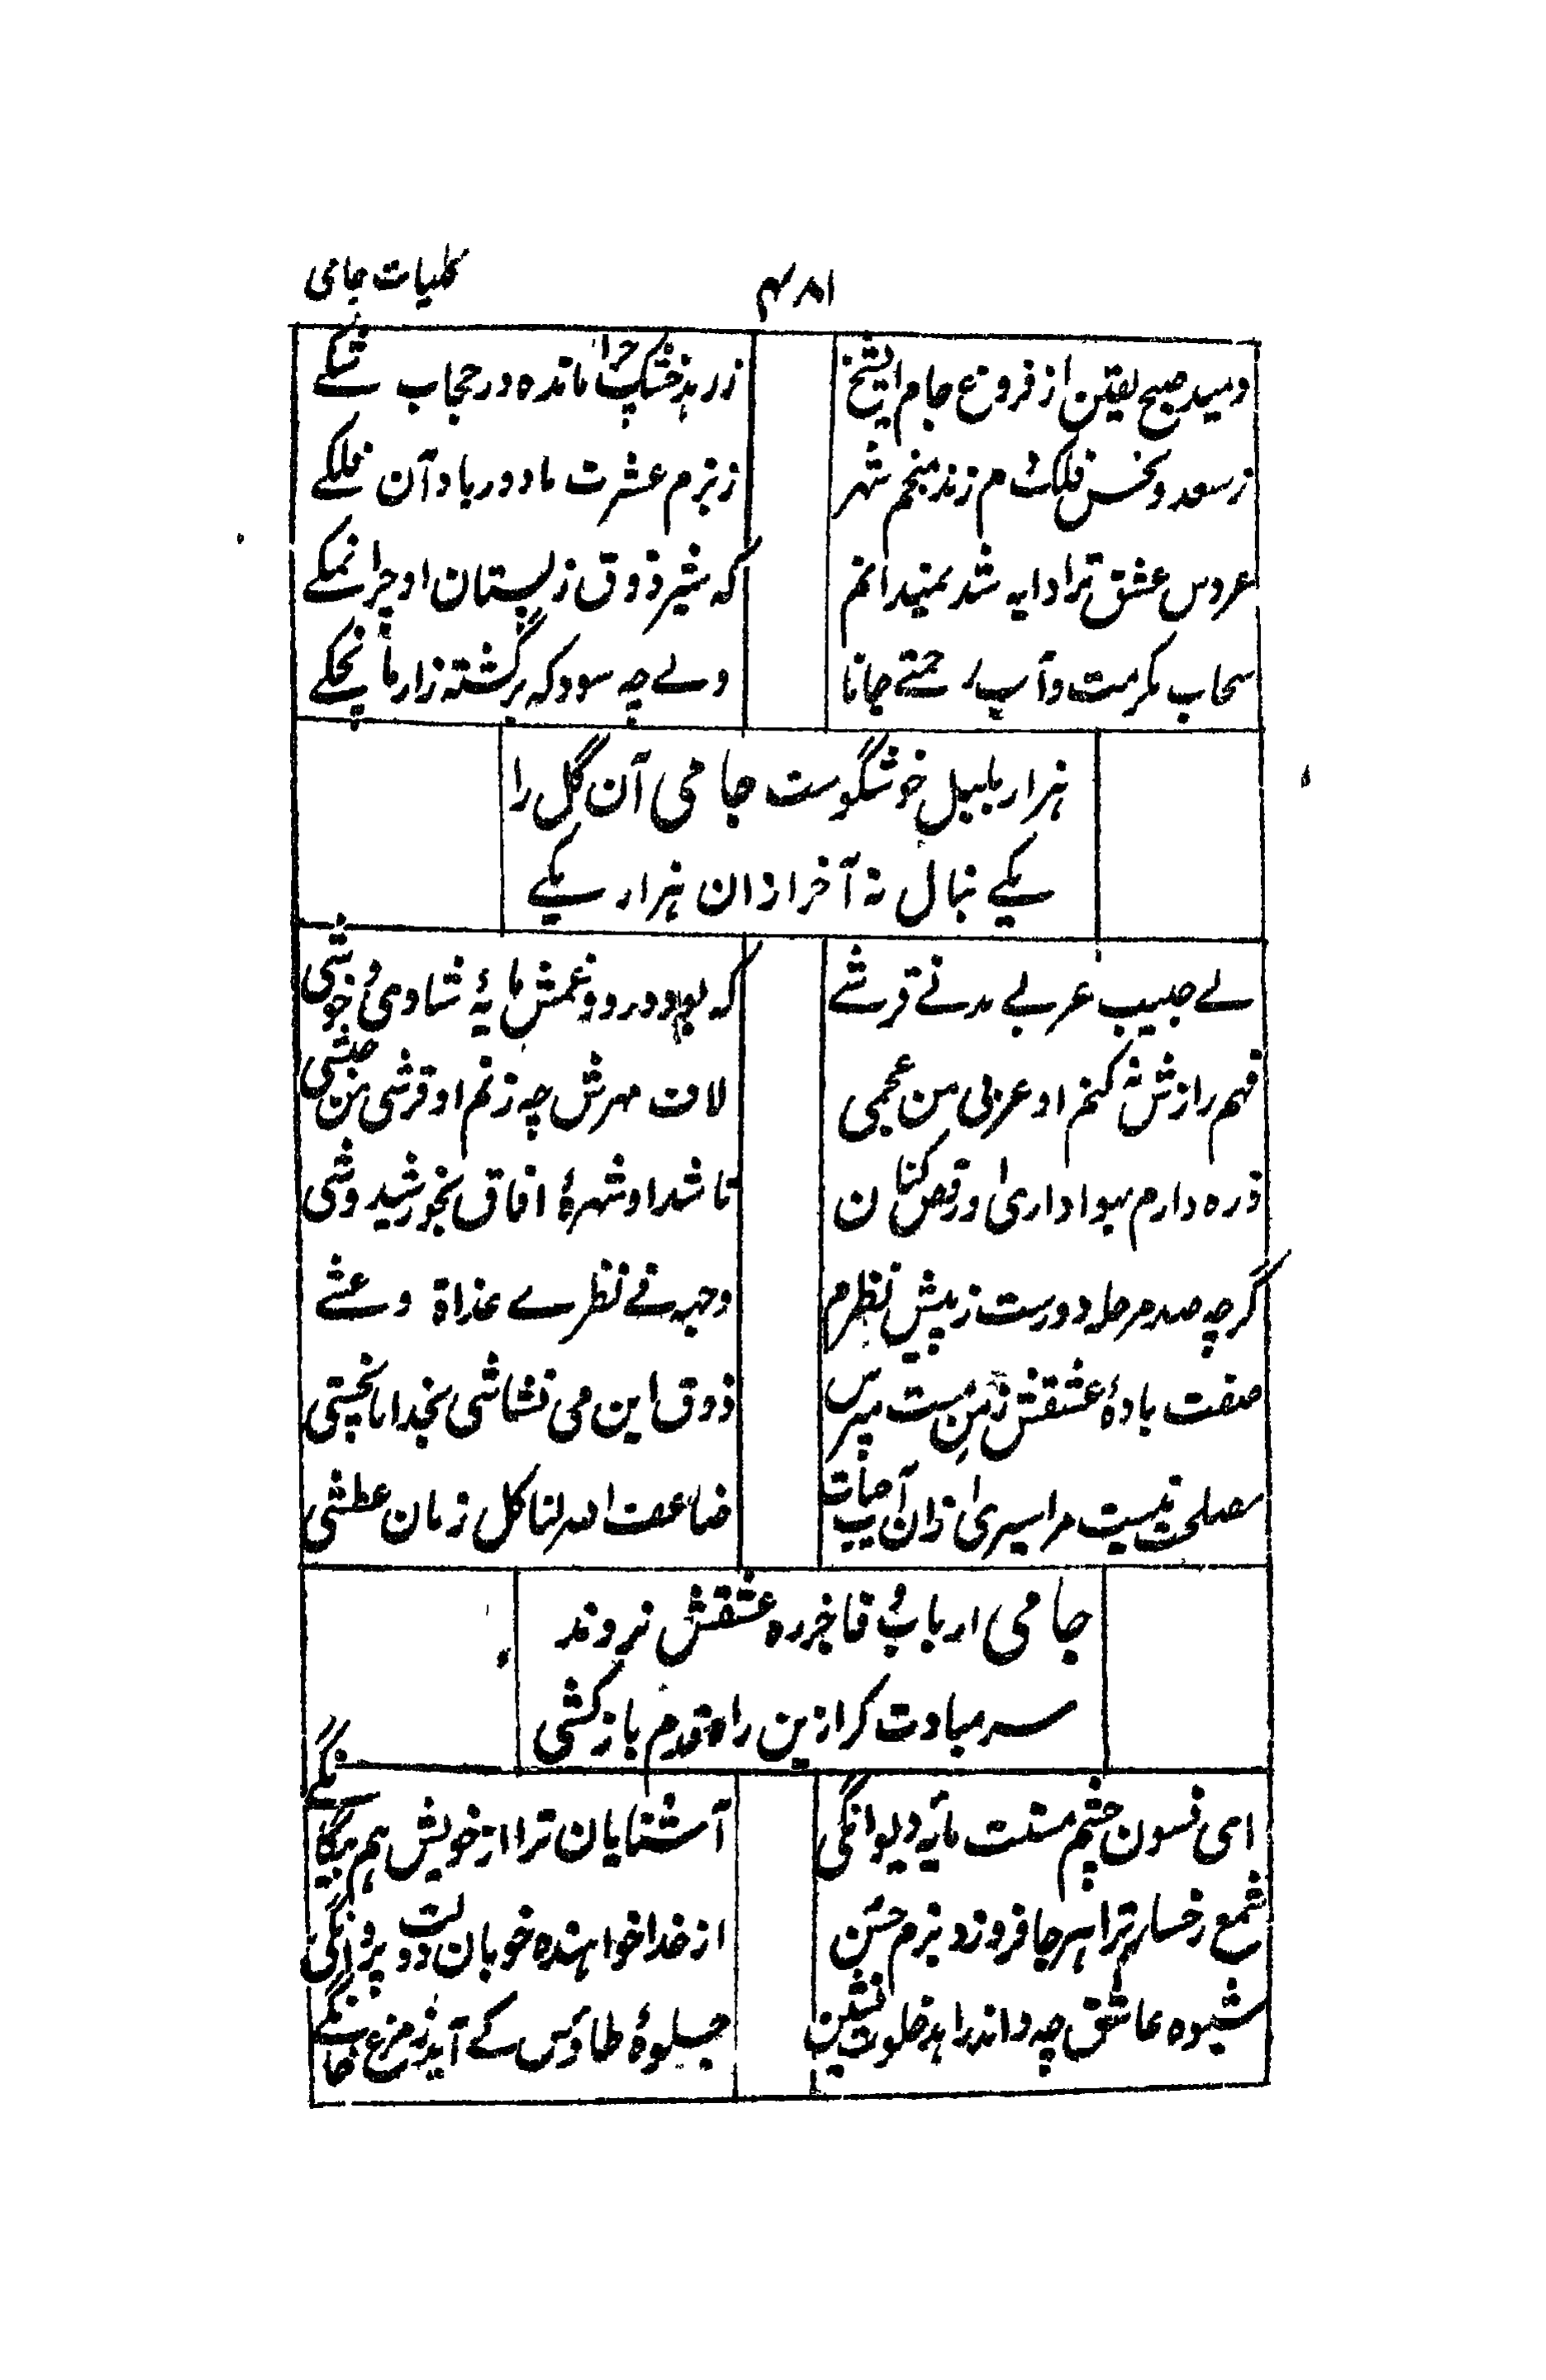 کلیات جامی
۴۸۱
دمید صبح یقین از فروغ جام ایشیخ
ز زہد خشک چرا ماندہ در حجاب شکے
ز سعد و نحس فلک دم زند منجم شہر
ز بزم عشرت ما دور باد آن فلکے
عروس عشق ترا دایہ شد نمیدانم
کہ شیر ذوق ز پستان او چرا نمکے
سحاب مکرمت و آب رحمتے جانا
ولے چہ سود کہ بر کشتہ زار ما نچکے
ہزار بلبل خوشگوست جامی آن گل را
یکے بنال نہ آخر ازان ہزار یکے
لے حبیب عربے مدنے قرشے
کہ بود درد و غمش مایۂ شادی و خوشی
فہم رازش نکنم او عربی من عجمی
لاف مہرش چہ زنم او قرشی من حبشی
ذرہ دارم بہواداری او رقص کنان
تا شد او شہرۂ افاق بخورشید وشی
گرچہ صد مرحلہ دورست ز پیش نظرم
وجہہ فے نظرے غداۃ وعشے
صفت بادۂ عشقش ز من مست مپرس
ذوق این می نشناسی بخدا تا نچشی
مصلحت نیست مرا سیری ازان آب حیات
ضاعف اللہ لنا کل زمان عطشی
جامی ارباب وفا جز رہ عشقش نروند
سر مبادت گر ازین راہ قدم باز کشی
ای فسون چشم مستت مایہ دیوانگی
آشنایان ترا از خویش ہم بیگانگے
شمع رخسار ترا ہر جا فروزد بزم حسن
از خدا خواہندہ خوبان دولت پروانگی
شیوہ عاشق چہ داند زاہد خلوت نشین
جلوۂ طاؤس کے آید ز مرغ خانگے